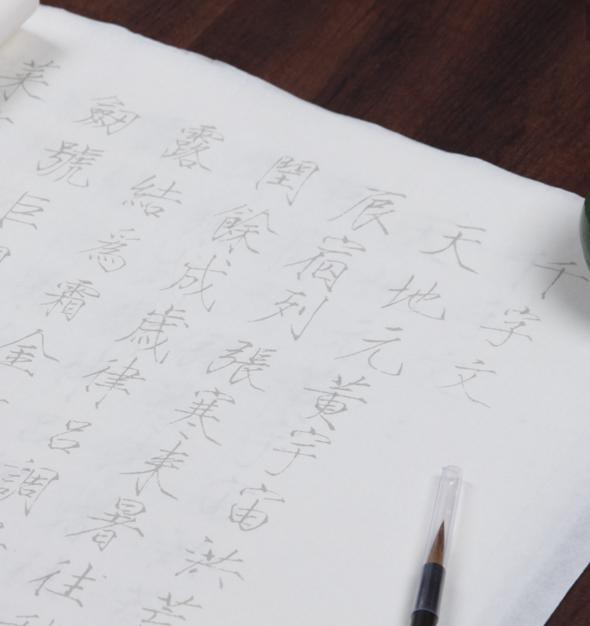 千字文
天地元黄宇宙洪荒
辰宿列張寒来暑往
閏餘成歳律呂調
露結為霜金
劍號巨
菜